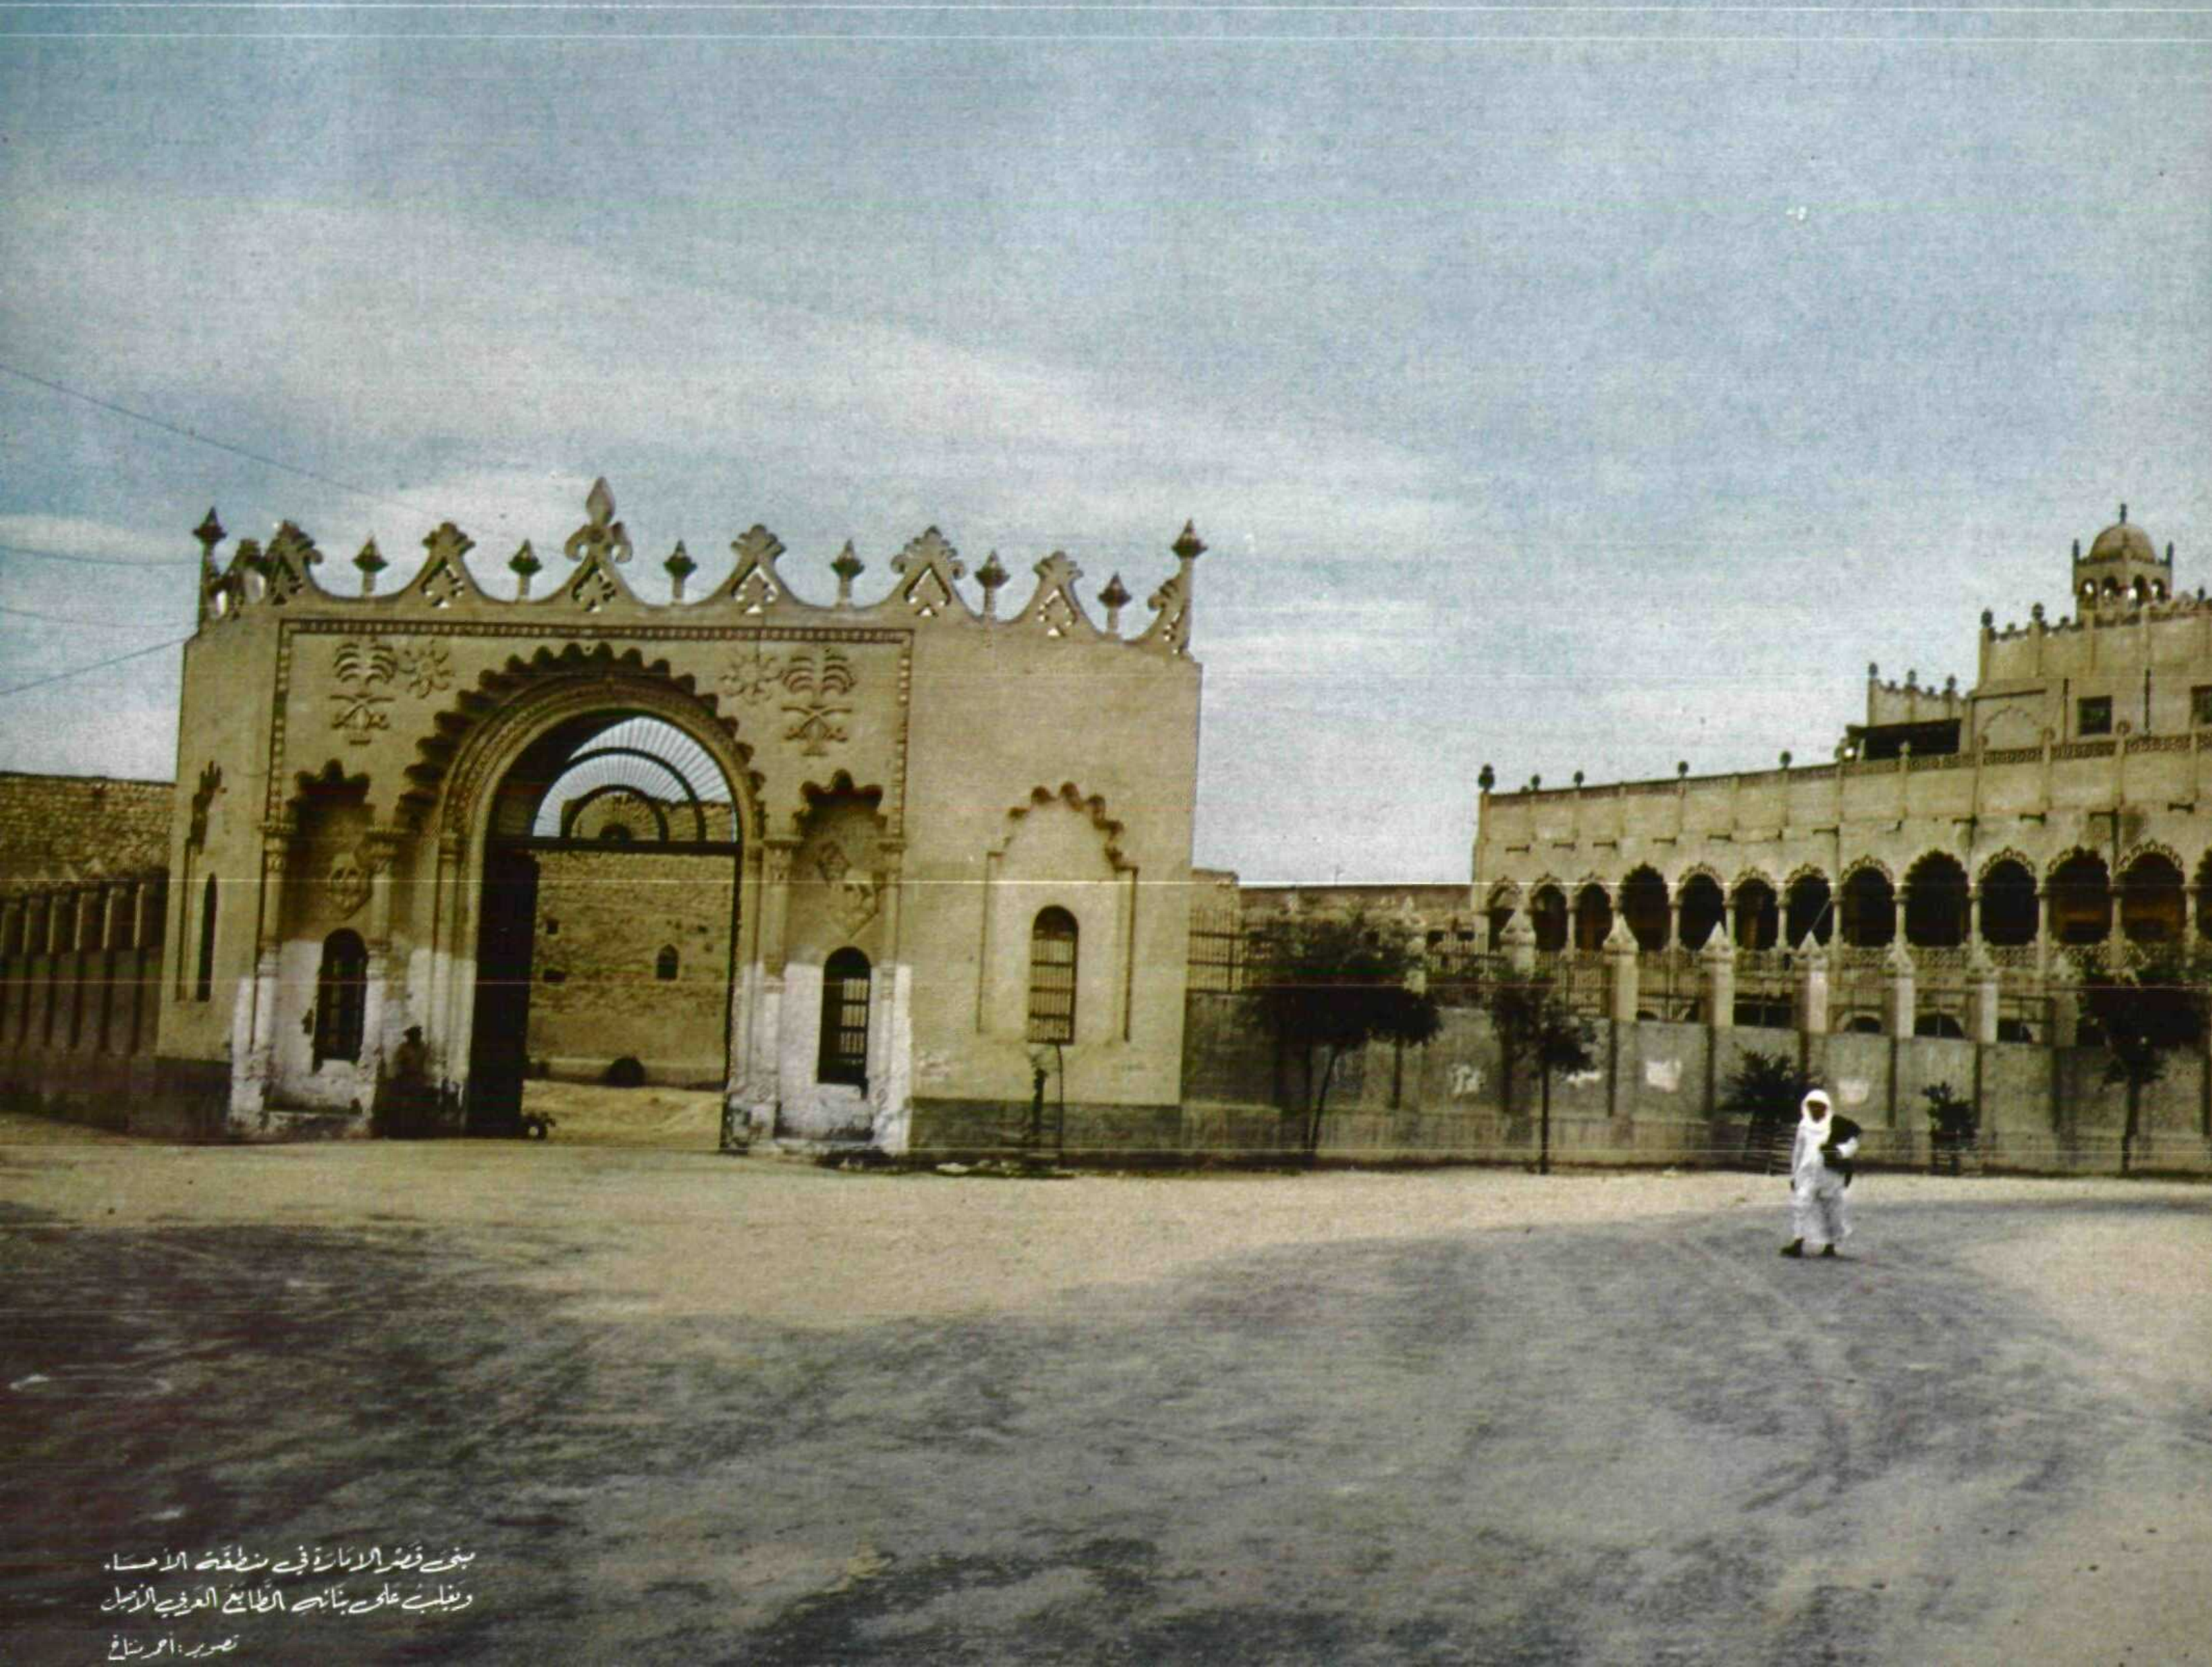 مبنى قصر الامارة في منطقة الأحساء
ويغلب على بنائه الطابع العربي الأصيل
تصوير : أحمد منتاخ